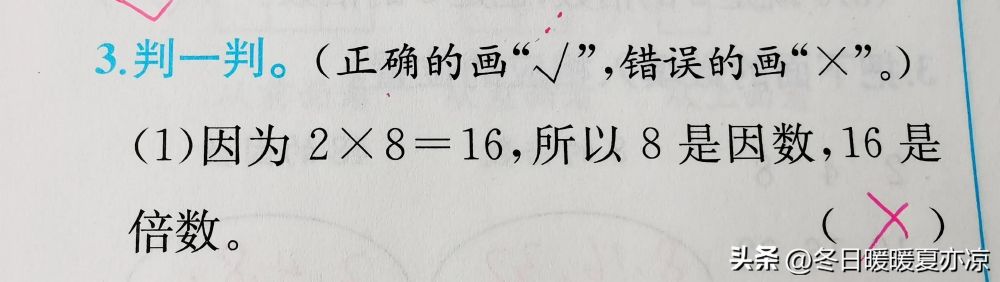 3.判一判。(正确的画“√”,错误的画“×”。)
(1)因为 2×8=16,所以 8 是因数,16 是
倍数。 (×)
头条 @冬日暖暖夏亦凉